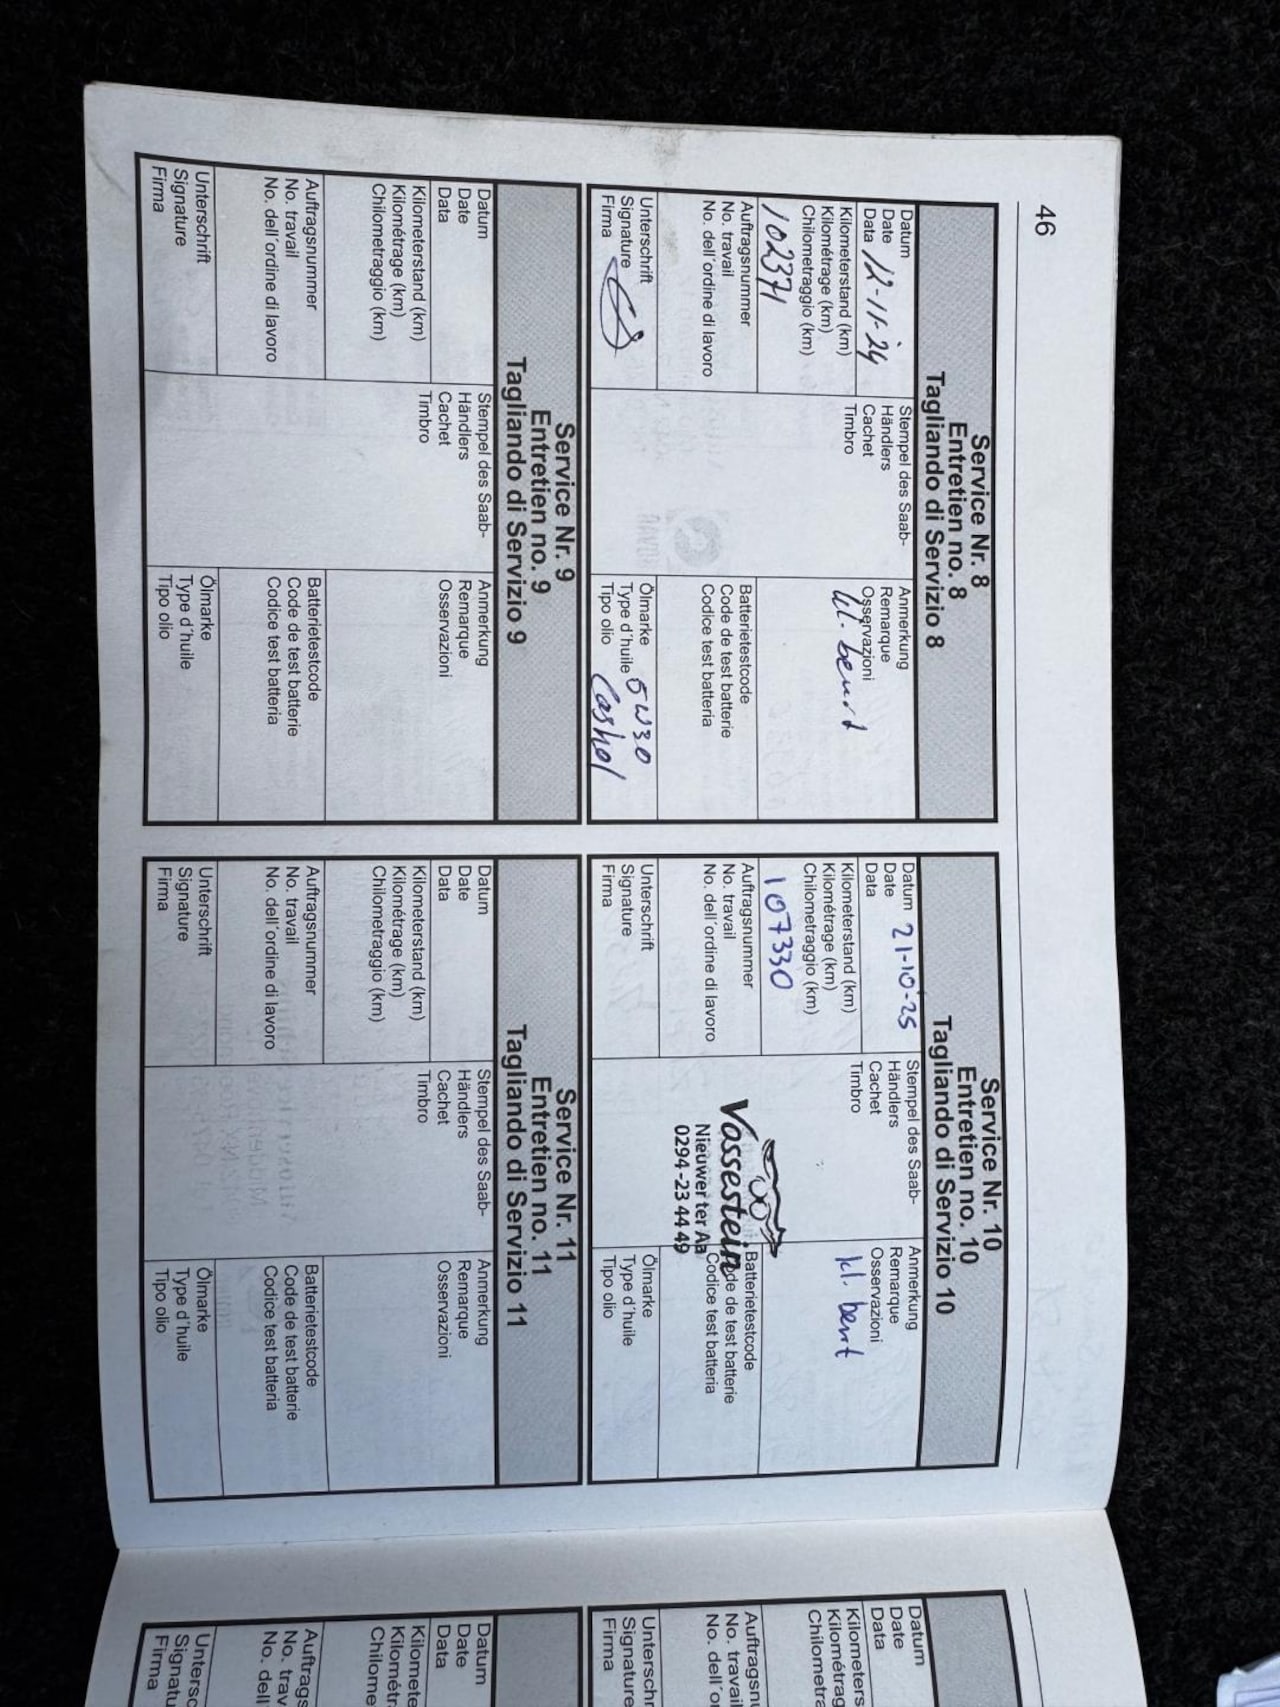 46
Service Nr. 8
Entretien no. 8
Tagliando di Servizio 8
Datum
Date
Data 12-11-24
Kilometerstand (km)
Kilométrage (km)
Chilometraggio (km)
102371
Auftragsnummer
No. travail
No. dell'ordine di lavoro
Unterschrift
Signature
Firma
Stempel des Saab-
Händlers
Cachet
Timbro
Anmerkung
Remarque
Osservazioni
kl. beurt
Batterietestcode
Code de test batterie
Codice test batteria
Ölmarke
Type d'huile 5W30
Tipo olio
Service Nr. 10
Entretien no. 10
Tagliando di Servizio 10
Datum 21-10-25
Date
Data
Kilometerstand (km)
Kilométrage (km)
Chilometraggio (km)
107330
Auftragsnummer
No. travail
No. dell'ordine di lavoro
Unterschrift
Signature
Firma
Stempel des Saab-
Händlers
Cachet
Timbro
Vossestein
Nieuwer ter Aa
0294-23 44 49
Anmerkung
Remarque
Osservazioni
kl. beurt
Batterietestcode
Code de test batterie
Codice test batteria
Ölmarke
Type d'huile
Tipo olio
Service Nr. 9
Entretien no. 9
Tagliando di Servizio 9
Datum
Date
Data
Kilometerstand (km)
Kilométrage (km)
Chilometraggio (km)
Auftragsnummer
No. travail
No. dell'ordine di lavoro
Unterschrift
Signature
Firma
Stempel des Saab-
Händlers
Cachet
Timbro
Anmerkung
Remarque
Osservazioni
Batterietestcode
Code de test batterie
Codice test batteria
Ölmarke
Type d'huile
Tipo olio
Service Nr. 11
Entretien no. 11
Tagliando di Servizio 11
Datum
Date
Data
Kilometerstand (km)
Kilométrage (km)
Chilometraggio (km)
Auftragsnummer
No. travail
No. dell'ordine di lavoro
Unterschrift
Signature
Firma
Stempel des Saab-
Händlers
Cachet
Timbro
Anmerkung
Remarque
Osservazioni
Batterietestcode
Code de test batterie
Codice test batteria
Ölmarke
Type d'huile
Tipo olio
Datum
Date
Data
Kilometers
Kilométrag
Chilometra
Auftragsnu
No. travail
No. dell'o
Unterschr
Signature
Firma
Datum
Date
Data
Kilomete
Kilométr
Chilome
Auftrags
No. trav
No. dell
Untersc
Signatu
Firma